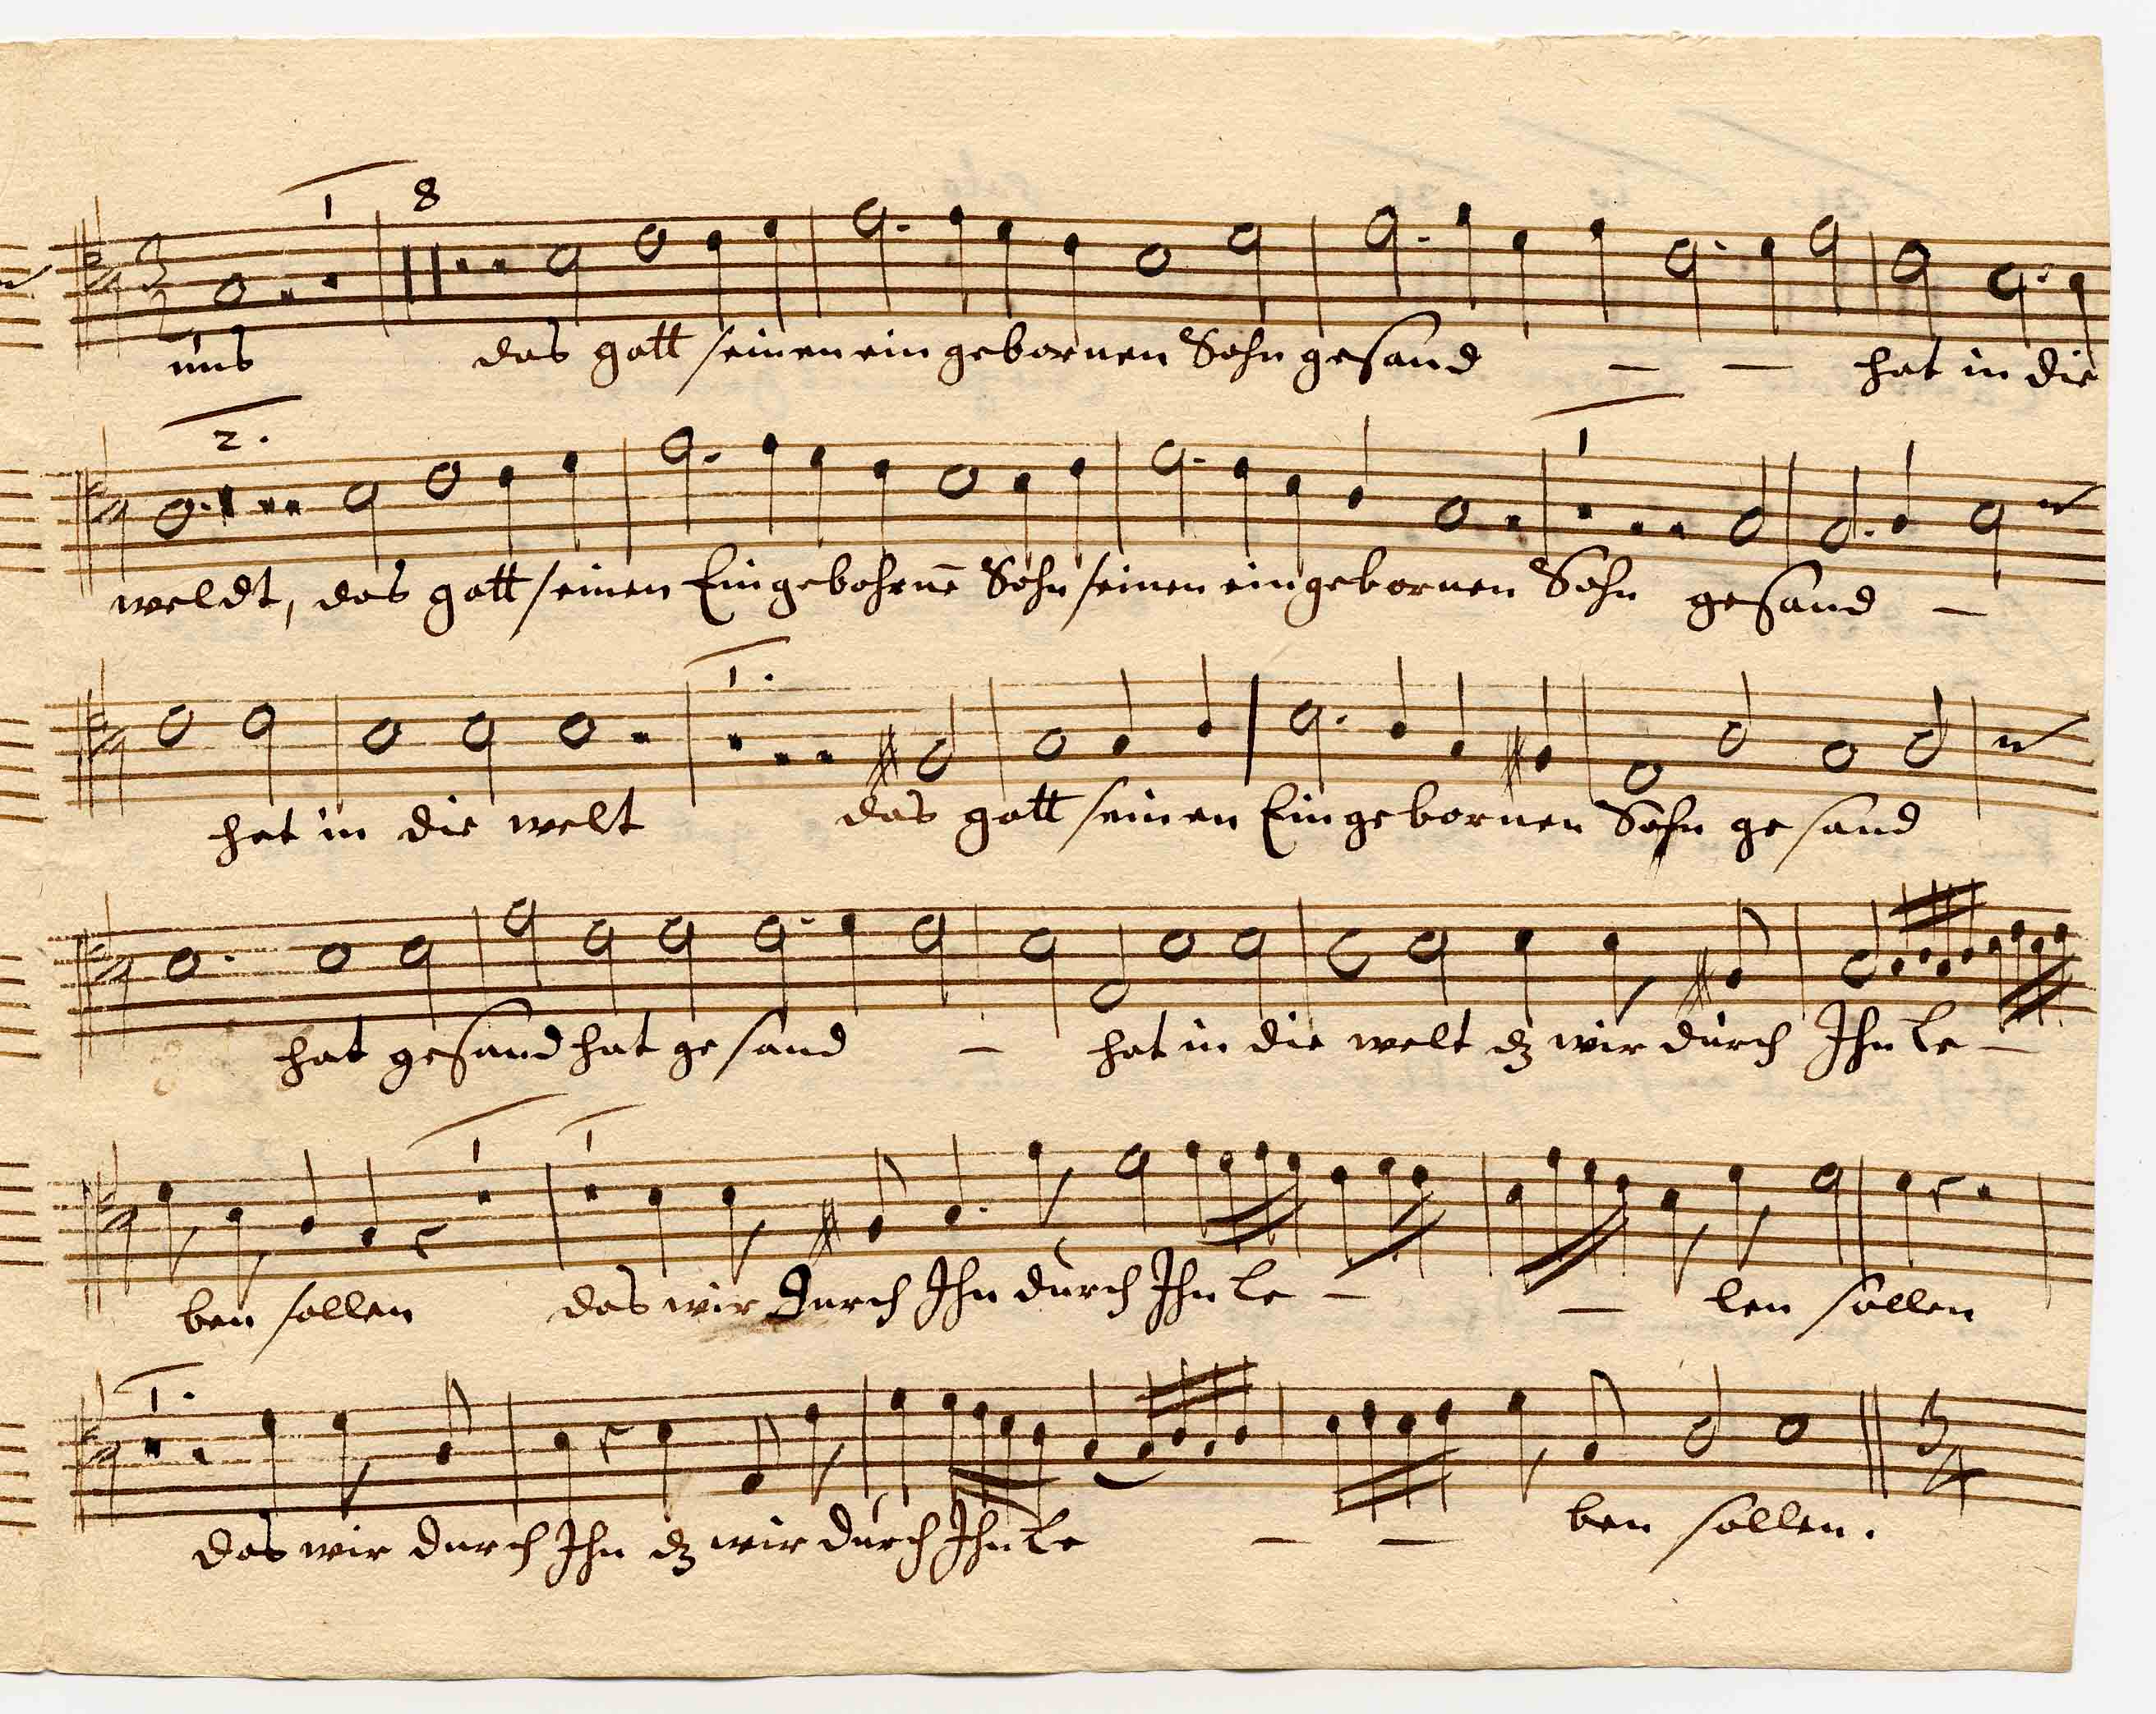 1 8
uns das gott seinen ein gebornen Sohn gesand — — hat in die
2. 1
weldt, das gott seinen Eingebohrnē Sohn seinen eingebornen Sohn gesand —
1.
hat in die welt das gott seinen Eingebornen Sohn ge sand
hat gesand hat ge sand — hat in die welt dz wir durch Ihn Le —
1 1
ben sollen das wir Durch Ihn durch Ihn Le — — ben sollen
1.
das wir durch Ihn dz wir durch Ihn Le — — ben sollen.